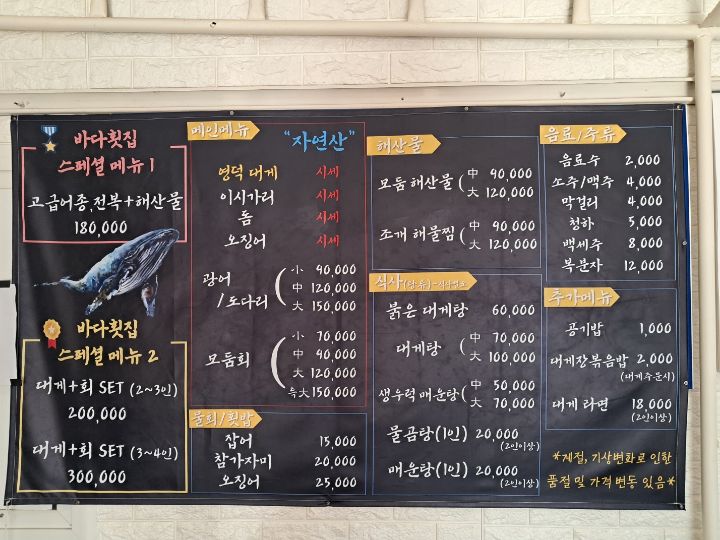 바다횟집
스페셜 메뉴 1
고급어종,전복+해산물
180,000
바다횟집
스페셜 메뉴 2
대게+회 SET (2~3인)
200,000
대게+회 SET (3~4인)
300,000
메인메뉴
"자연산"
영덕 대게 시세
이시가리 시세
돔 시세
오징어 시세
광어
/도다리
小 90,000
中 120,000
大 150,000
모둠회
小 70,000
中 90,000
大 120,000
특大 150,000
물회/횟밥
잡어 15,000
참가자미 20,000
오징어 25,000
해산물
모둠 해산물
中 90,000
大 120,000
조개 해물찜
中 90,000
大 120,000
붉은 대게탕 60,000
대게탕
中 70,000
大 100,000
생우럭 매운탕
中 50,000
大 70,000
물곰탕(1인) 20,000
(2인이상)
매운탕(1인) 20,000
(2인이상)
음료/주류
음료수 2,000
소주/맥주 4,000
막걸리 4,000
청하 5,000
백세주 8,000
복분자 12,000
추가메뉴
공기밥 1,000
대게장볶음밥 2,000
(대게주문시)
대게 라면 18,000
(2인이상)
*계절, 기상변화로 인한
품절 및 가격 변동 있음*